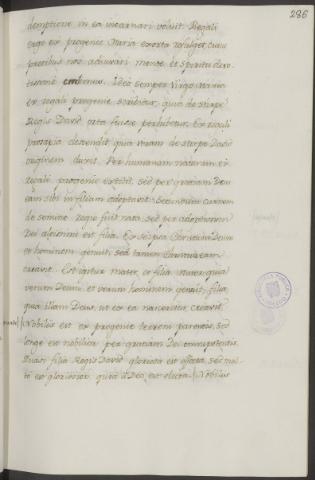 286
demptione in ea incarnari voluit. Regali
ergo ex progenie Maria exorta refulget, cuius
precibus nos adiuvari mente et spiritu devo-
tissime
Ideo semper Virgo Maria
ex regali progenie scribitur, quia de stirpe
Regis David orta fuisse perhibetur. Ex regali
prosapia descendit, quia vitam de stirpe David
originem duxit. Per humanam naturam ex
regali progenie extitit, sed per gratiam Deus
eam sibi in filiam adoptavit. Secundum carnem
de semine Regio fuit nata, sed per adoptionem
Dei altissimi est filia. Ex se ipsa
Deum
et hominem genuit, sed tamen
eam
creavit. Est igitur mater, et filia. Mater quia
verum Deum et verum hominem genuit, filia
quia illam Deus, ut ex ea nasceretur, creavit.
Nobilis est ex progenie terreni parentis, sed
longe est nobilior per gratiam Dei omnipotentis.
filia Regis David gloriosa est effecta, sed mul-
to est gloriosior quia a Deo est electa. Nobilis